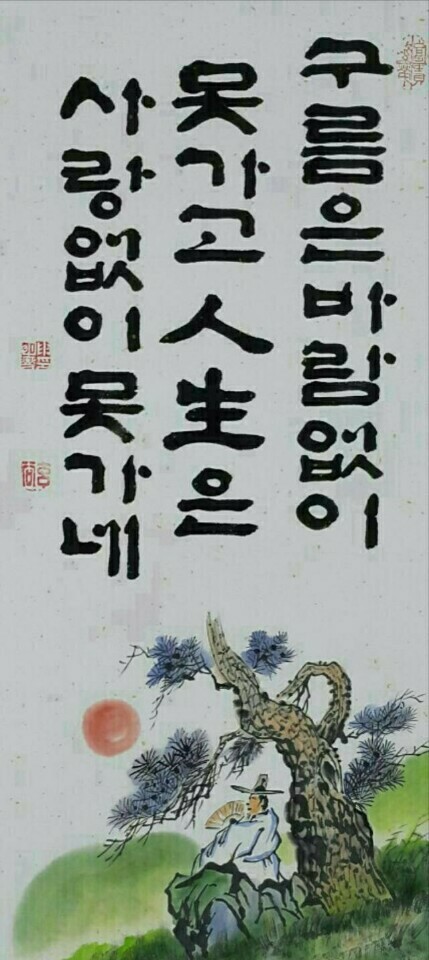 구름은바람없이
못가고人生은
사랑없이못가네